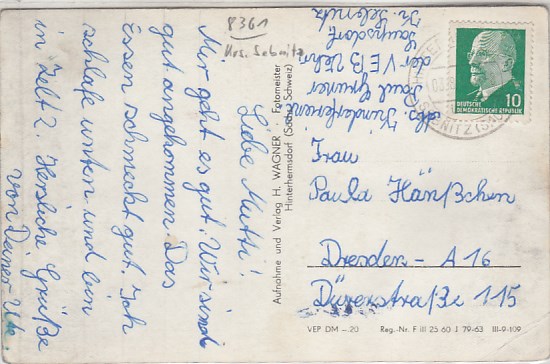 8361
Krs. Sebnitz
Liebe Mutti!
Mir geht es gut. Wir sind
gut angekommen. Das
Essen schmeckt gut. Ich
schlafe unten und bin
in Zelt 2. Herzliche Grüße
von Deiner Ute
Aufnahme und Verlag H. WAGNER - Fotomeister
Hinterhermsdorf (Sächs. Schweiz)
Abs. Kinderferienl.
Paul Gruner
der VEB Vehr.
Saupsdorf
Kr. Sebnitz
DEUTSCHE
DEMOKRATISCHE REPUBLIK
10
Frau
Paula Hänßchen
Dresden - A 16
Dürerstraße 115
VEP DM -.20 Reg.-Nr. F III 25 60 J 79-63 III-9-109